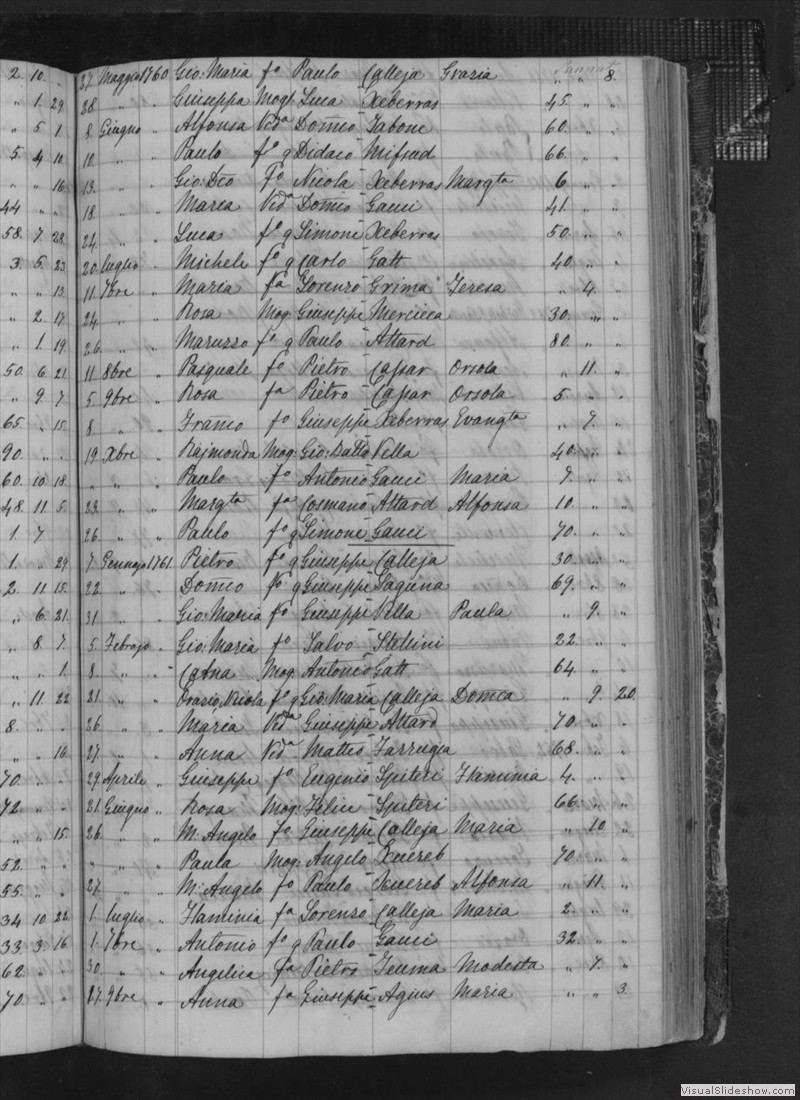 2. 10. „ 27. Maggio 1760 Gio: Maria fo Paulo Calleja Grazia „ „ 8.
„ 1. 29 28 „ „ Giuseppa Mogl Luca Xeberras 45. „ „
„ 5. 1 8 Giugno „ Alfonsa Vida Domco Tabone 60. „ „
5. 4 10 10. „ „ Paulo fo q Didaco Mifsud 66. „ „
„ „ 16 13. „ „ Gio: Dco Fo Nicola Xeberras Margta 6 „ „
44 „ „ 18. „ „ Maria Vida Domco Gauci 41. „ „
58. 7 28. 24. „ „ Luca fo q Simone Xeberras 50. „ „
3. 5. 23 20. luglio „ Michele fo q Carlo Gatt 40. „ „
„ „ 13 11. 7bre „ Maria fa Lorenzo Grima Teresa „ 4. „
„ 2. 17 24. „ „ Rosa Mog: Giuseppe Mercieca 30. „ „
„ 1. 19 26. „ „ Maruzzo fo q Paulo Attard 80. „ „
50. 6 21 11 8bre „ Pasquale fo Pietro Caspar Orsola „ 11. „
„ 9 7 5. 9bre „ Rosa fa Pietro Caspar Orsola 5 „ „
65. „ 15 8. „ „ Franco fo Giuseppe Xeberras Evangta „ 7. „
90. „ „ 19 Xbre „ Rajmonda Mog: Gio: Batta Vella 40. „ „
60. 10. 18. „ „ „ Paulo fo Antonio Gauci Maria 7. „ „
48. 11 5. 23. „ „ Margta fa Cosmano Attard Alfonsa 10. „ „
1. 7 26. „ „ Paulo fo q Simone Gauci 70. „ „
1. „ 29. 7. Gennajo 1761. Pietro fo q Giuseppe Calleja 30. „ „
2. 11 15. 22. „ „ Domco fo q Giuseppe Laguna 69. „ „
„ 6. 21. 31 „ „ Gio: Maria fo Giuseppe Vella Paula „ 9. „
„ 8. 7. 5. Febrajo „ Gio: Maria fo Salvo Stelini 22. „ „
„ „ 1. 8. „ „ Catna Mog: Antonio Gatt 64. „ „
„ 11. 22 21. „ „ Orazio, Nicola fo q Gio: Maria Calleja Domca „ 9. 20.
8. „ „ 26. „ „ Maria Vida Giuseppe Attard 70. „ „
„ „ 16 27. „ „ Anna Vida Matteo Farrugia 68. „ „
70. „ „ 29. Aprile „ Giuseppe fo Eugenio Spiteri Flaminia 4. „ „
72. „ „ 21. Giugno „ Rosa Mog: Felice Spiteri 66. „ „
„ „ 15. 26. „ „ M: Angelo fo Giuseppe Calleja Maria „ 10. „
52. „ „ „ „ „ Paula Mog: Angelo Xuereb 70. „ „
55. „ „ 27. „ „ M: Angelo fo Paulo Xuereb Alfonsa „ 11. „
34 10 22 1. luglio „ Flaminia fa Lorenzo Calleja Maria 2. „ „
33. 3. 16 1. 7bre „ Antonio fo q Paulo Gauci 32. „ „
62. „ „ 30. „ „ Angelica fa Pietro Teuma Modesta „ 7. „
70. „ „ 27. 9bre „ Anna fa Giuseppe Agius Maria „ „ 3.
VisualSlideshow.com